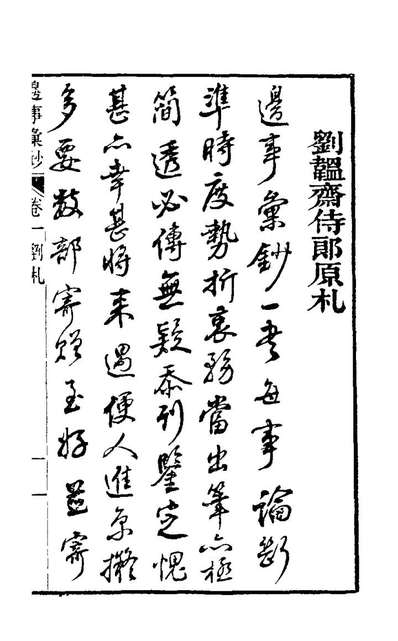 劉韞齋侍郎原札
邊事彙鈔一書每事論斷
準時度勢折衷務當出筆亦極
簡透必傳無疑忝列鑒定愧
甚亦幸甚將來遇便人進京擬
多要數部寄贈至好並寄
邊事彙鈔
卷一
劉札
一